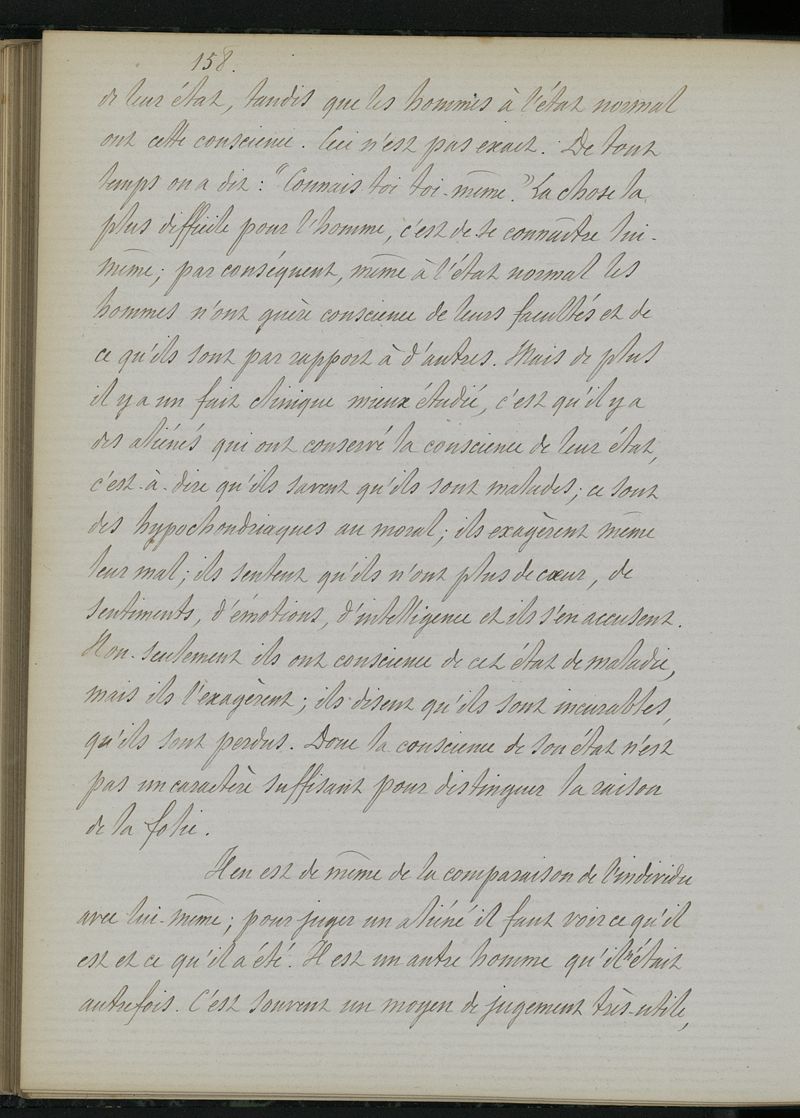 158.
de leur état, tandis que les hommes à l'état normal
ont cette conscience. Ceci n'est pas exact. De tout
temps on a dit : "Connais toi toi-même." La chose la
plus difficile pour l'homme, c'est de se connaître lui-
même; par conséquent, même à l'état normal les
hommes n'ont guère conscience de leurs facultés et de
ce qu'ils sont par rapport à d'autres. Mais de plus
il y a un fait clinique mieux étudié, c'est qu'il y a
des aliénés qui ont conservé la conscience de leur état,
c'est-à-dire qu'ils savent qu'ils sont malades; ce sont
des hypochondriaques au moral; ils exagèrent même
leur mal; ils sentent qu'ils n'ont plus de cœur, de
sentiments, d'émotions, d'intelligence et ils s'en accusent.
Non-seulement ils ont conscience de cet état de maladie,
mais ils l'exagèrent; ils disent qu'ils sont incurables,
qu'ils sont perdus. Donc la conscience de son état n'est
pas un caractère suffisant pour distinguer la raison
de la folie.
Il en est de même de la comparaison de l'individu
avec lui-même; pour juger un aliéné il faut voir ce qu'il
est et ce qu'il a été. Il est un autre homme qu'il n'était
autrefois. C'est souvent un moyen de jugement très-utile,